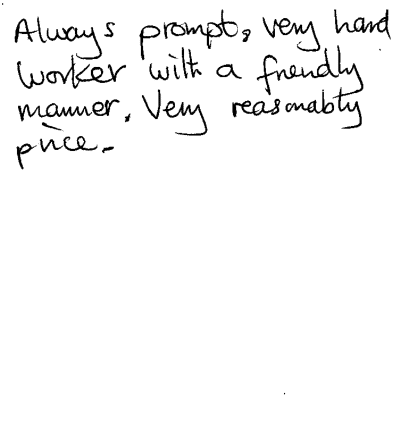 Always prompt, very hard
worker with a friendly
manner. Very reasonably
price.